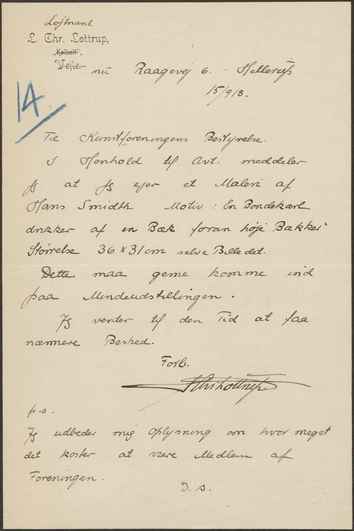 Løjtnant
L. Chr. Lottrup,
Vejle
nu Raagevej 6. - Hellerup
15/9 18.
14.
Til Kunstforeningens Bestyrelse.
I Henhold til Avt. meddeler
jeg at jeg ejer et Maleri af
Hans Smidth Motiv: En Bondekarl
drikker af en Bæk foran høje Bakker
Størrelse 36 x 31 cm selve Billedet.
Dette maa gerne komme ind
paa Mindeudstillingen.
Jeg venter til den Tid at faa
nærmere Besked.
Forb.
L Chr Lottrup
p.s.
Jeg udbeder mig Oplysning om hvor meget
det koster at være Medlem af
Foreningen.
D. s.